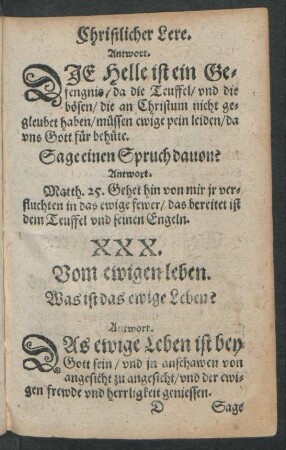 Christlicher Lere.
Antwort.
DJE Helle ist ein Ge-
fengnis/ da die Teuffel/ vnd die
bösen/ die an Christum nicht ge-
gleubet haben/ müssen ewige pein leiden/ da
vns Gott für behüte.
Sage einen Spruch dauon?
Antwort.
Matth. 25. Gehet hin von mir jr ver-
fluchten in das ewige fewer/ das bereitet ist
dem Teuffel vnd seinen Engeln.
XXX.
Vom ewigen leben.
Was ist das ewige Leben?
Antwort.
DAs ewige Leben ist bey
Gott sein/ vnd jn anschawen von
angesicht zu angesicht/ vnd der ewi-
gen frewde vnd herrligkeit geniessen.
D Sage